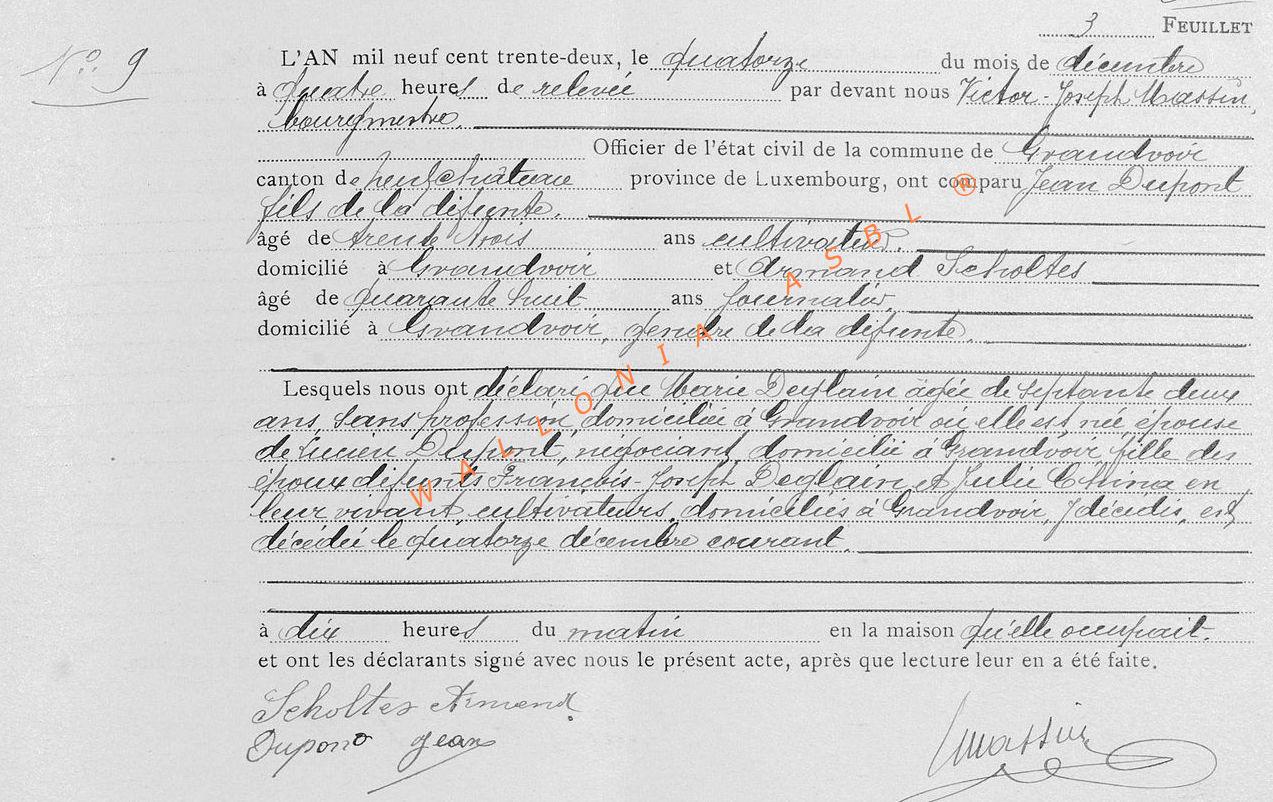 3 FEUILLET
N°. 9
L'AN mil neuf cent trente-deux, le quatorze du mois de décembre
à quatre heures de relevée par devant nous Victor-Joseph Massin,
bourgmestre.
Officier de l'état civil de la commune de Grandvoir
canton de Neufchâteau province de Luxembourg, ont comparu Jean Dupont
fils de la défunte.
âgé de trente trois ans cultivateur.
domicilié à Grandvoir et Armand Scholtes
âgé de quarante huit ans journalier
domicilié à Grandvoir, gendre de la défunte.
Lesquels nous ont déclaré que Marie Deglain âgée de septante deux
ans, sans profession, domiciliée à Grandvoir où elle est née épouse
de Lucien Dupont, négociant, domicilié à Grandvoir fille des
époux défunts François-Joseph Deglain et Julie China en
leur vivant, cultivateurs, domiciliés à Grandvoir, y décédés, est
décédée le quatorze décembre courant.
à dix heures du matin en la maison qu'elle occupait.
et ont les déclarants signé avec nous le présent acte, après que lecture leur en a été faite.
Scholtes Armand
Dupont Jean
Massin
WALLONIA ASBL ®